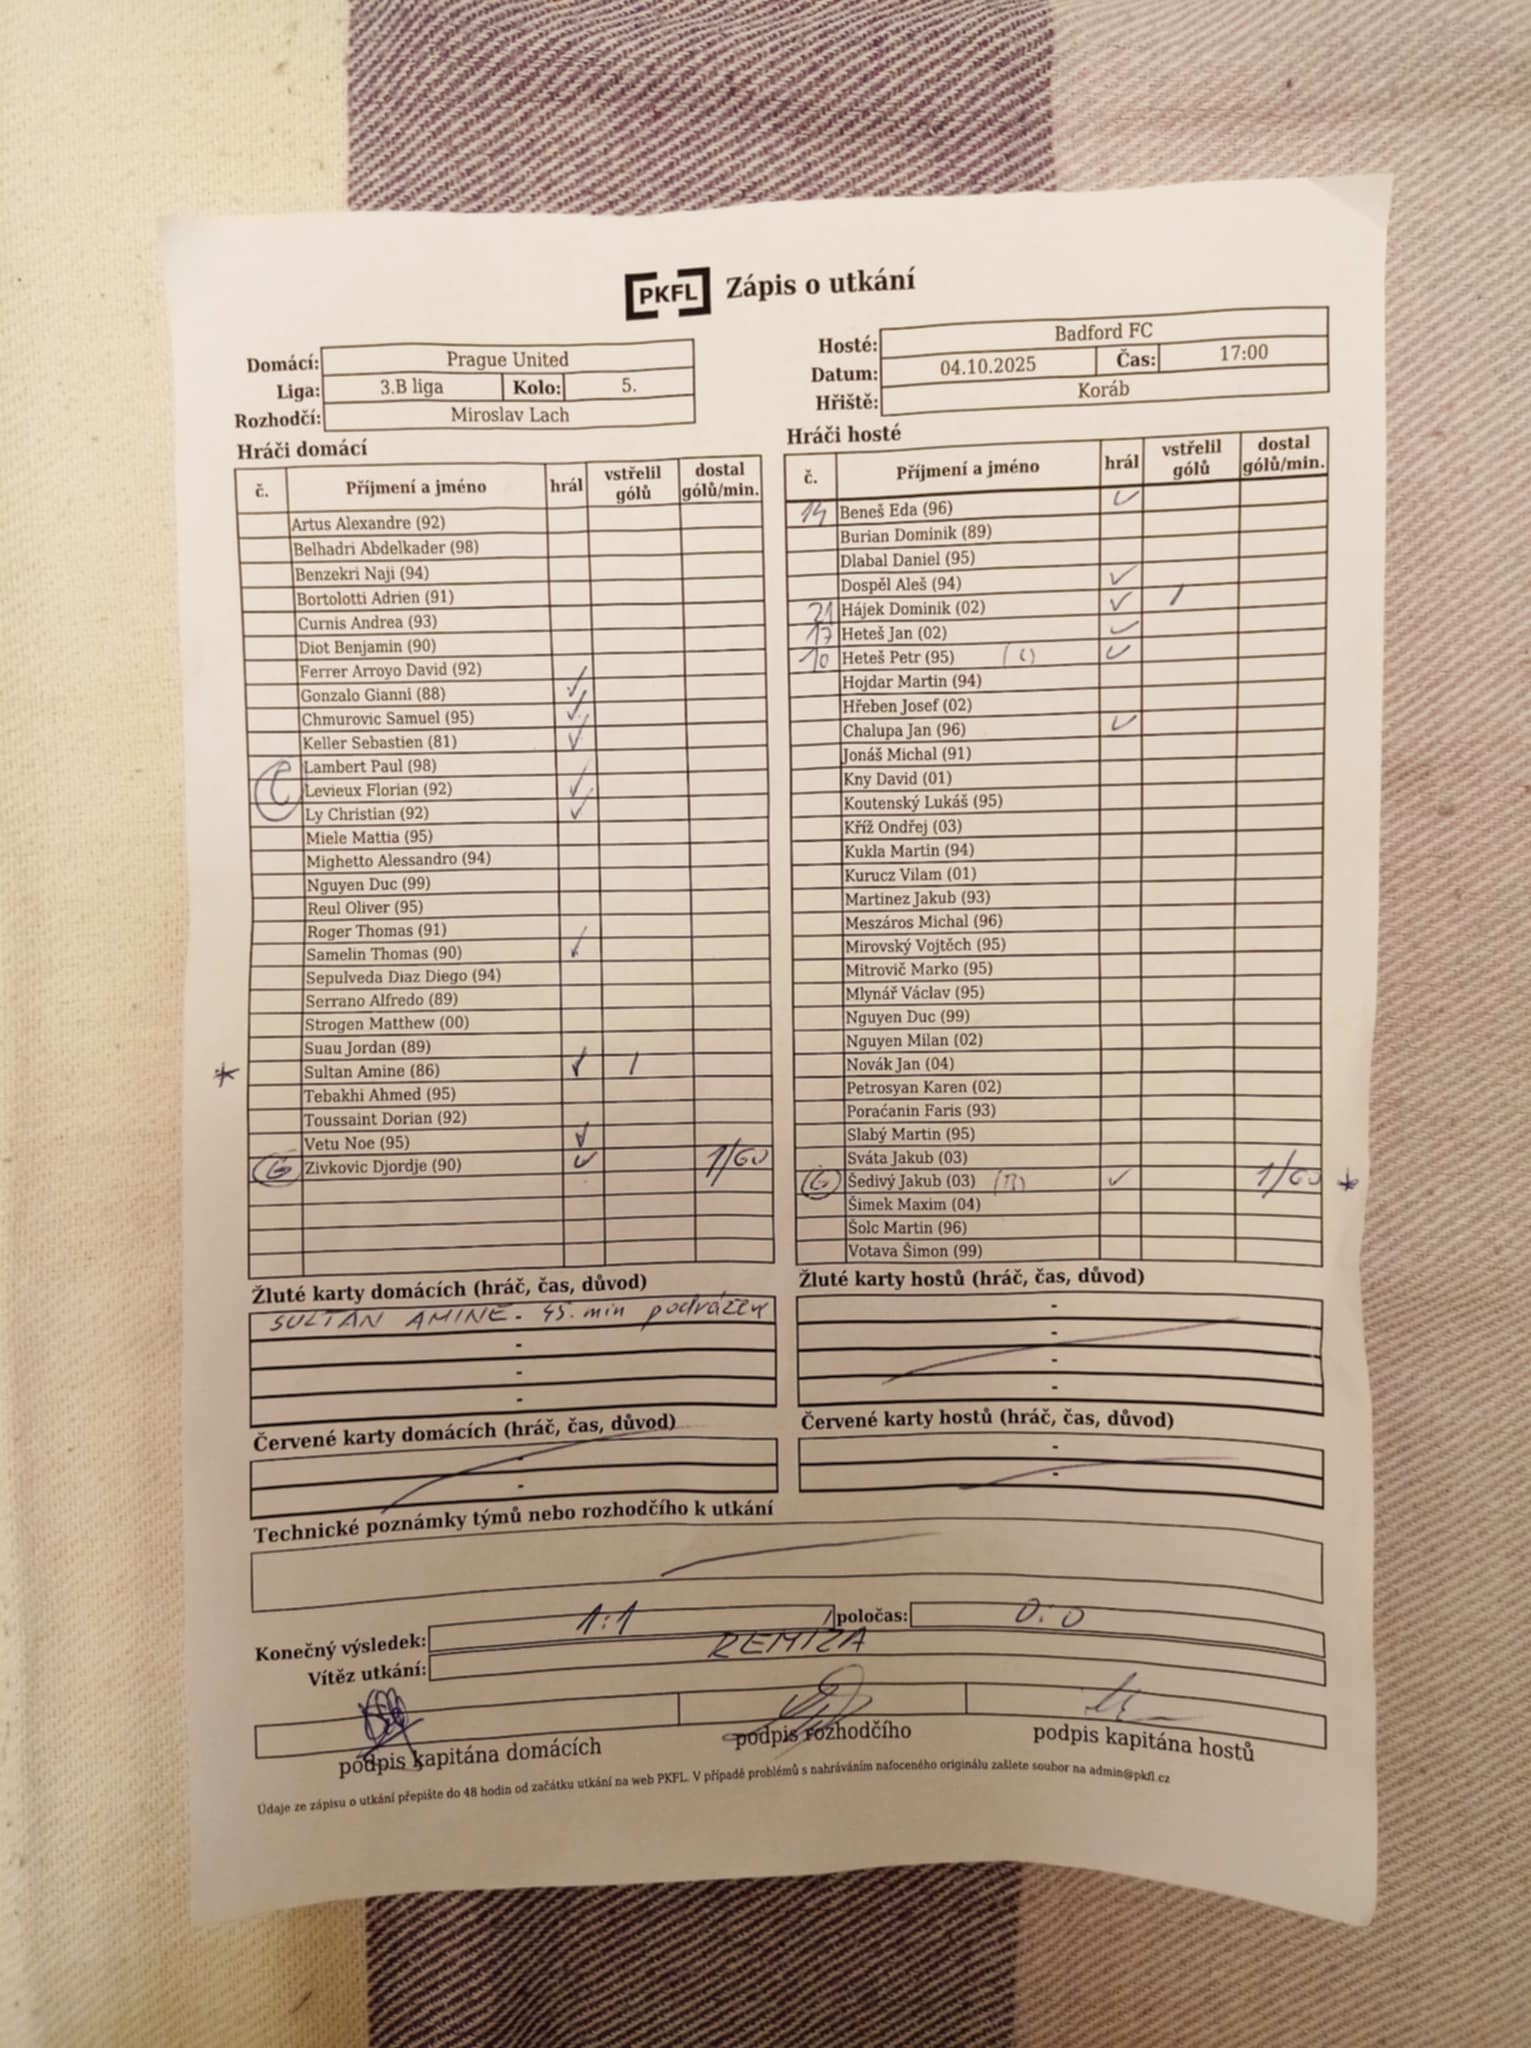 PKFL Zápis o utkání
Domácí: Prague United
Liga: 3.B liga Kolo: 5.
Rozhodčí: Miroslav Lach
Hosté: Badford FC
Datum: 04.10.2025 Čas: 17:00
Hřiště: Koráb
Hráči domácí
č. Příjmení a jméno hrál vstřelil gólů dostal gólů/min.
Artus Alexandre (92)
Belhadri Abdelkader (98)
Benzekri Naji (94)
Bortolotti Adrien (91)
Curnis Andrea (93)
Diot Benjamin (90)
Ferrer Arroyo David (92)
Gonzalo Gianni (88) ✓
Chmurovic Samuel (95) ✓
Keller Sebastien (81) ✓
Lambert Paul (98)
C Levieux Florian (92) ✓
Ly Christian (92) ✓
Miele Mattia (95)
Mighetto Alessandro (94)
Nguyen Duc (99)
Reul Oliver (95)
Roger Thomas (91)
Samelin Thomas (90) ✓
Sepulveda Diaz Diego (94)
Serrano Alfredo (89)
Strogen Matthew (00)
Suau Jordan (89)
* Sultan Amine (86) ✓ 1
Tebakhi Ahmed (95)
Toussaint Dorian (92)
Vetu Noe (95) ✓
G Zivkovic Djordje (90) ✓ 1/60
Hráči hosté
č. Příjmení a jméno hrál vstřelil gólů dostal gólů/min.
14 Beneš Eda (96) ✓
Burian Dominik (89)
Dlabal Daniel (95)
Dospěl Aleš (94) ✓
21 Hájek Dominik (02) ✓ 1
17 Heteš Jan (02) ✓
10 Heteš Petr (95) (C) ✓
Hojdar Martin (94)
Hřeben Josef (02)
Chalupa Jan (96) ✓
Jonáš Michal (91)
Kny David (01)
Koutenský Lukáš (95)
Kříž Ondřej (03)
Kukla Martin (94)
Kurucz Vilam (01)
Martinez Jakub (93)
Meszáros Michal (96)
Mirovský Vojtěch (95)
Mitrovič Marko (95)
Mlynář Václav (95)
Nguyen Duc (99)
Nguyen Milan (02)
Novák Jan (04)
Petrosyan Karen (02)
Poraćanin Faris (93)
Slabý Martin (95)
Sváta Jakub (03)
G Šedivý Jakub (03) ✓ 1/60 *
Šimek Maxim (04)
Šolc Martin (96)
Votava Šimon (99)
Žluté karty domácích (hráč, čas, důvod)
SULTAN AMINE - 45. min podrážení
-
-
-
Žluté karty hostů (hráč, čas, důvod)
-
-
-
-
Červené karty domácích (hráč, čas, důvod)
-
-
Červené karty hostů (hráč, čas, důvod)
-
-
Technické poznámky týmů nebo rozhodčího k utkání
Konečný výsledek: 1:1 poločas: 0:0
Vítěz utkání: REMIZA
podpis kapitána domácích podpis rozhodčího podpis kapitána hostů
Údaje ze zápisu o utkání přepište do 48 hodin od začátku utkání na web PKFL. V případě problémů s nahráváním nafoceného originálu zašlete soubor na admin@pkfl.cz